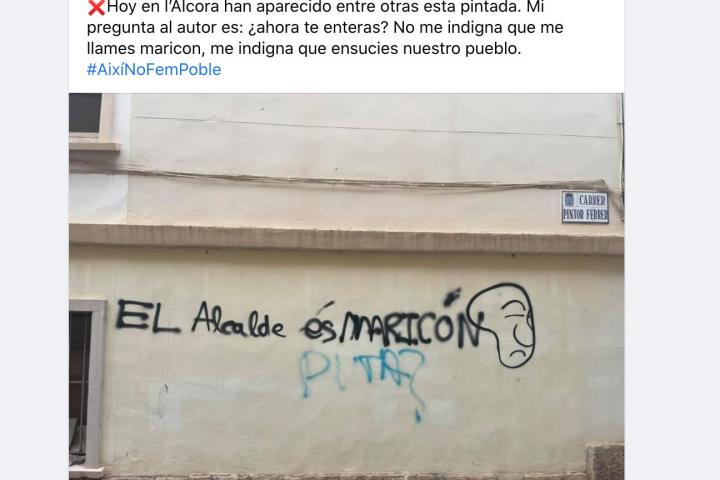 ❌Hoy en l'Alcora han aparecido entre otras esta pintada. Mi
pregunta al autor es: ¿ahora te enteras? No me indigna que me
llames maricon, me indigna que ensucies nuestro pueblo.
#AixíNoFemPoble
CARRER
PINTOR FERRER
EL Alcalde és MARICÓN
PUTA?